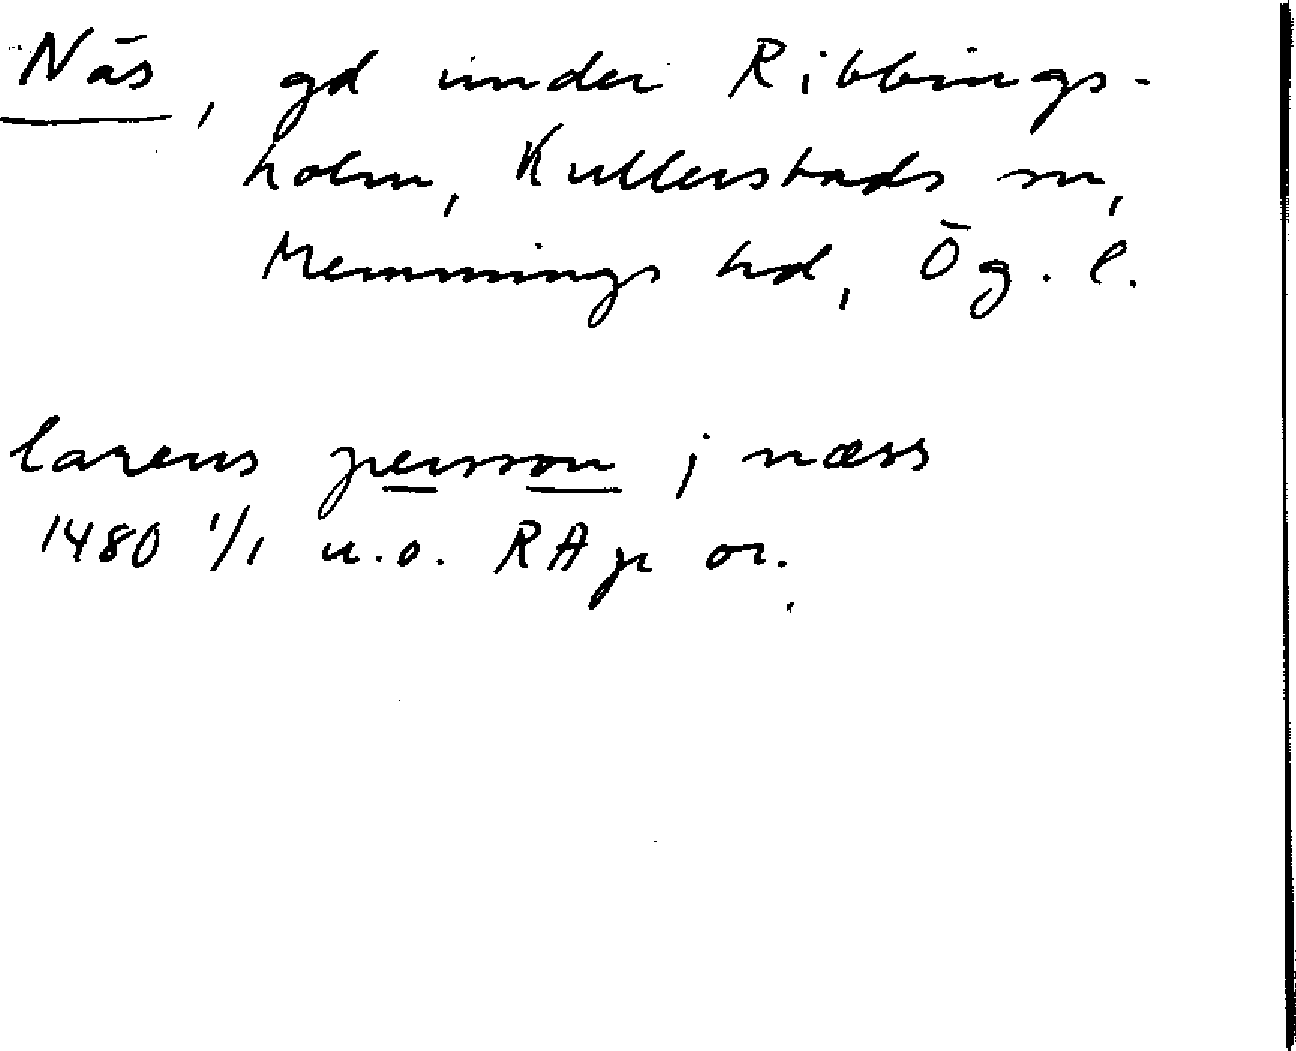 Näs, gd under Ribbings-
holm, Kullerstads sn,
Memmings hd, Ög. l.
larens persson j næss
1480 1/1 u.o. RAp or.